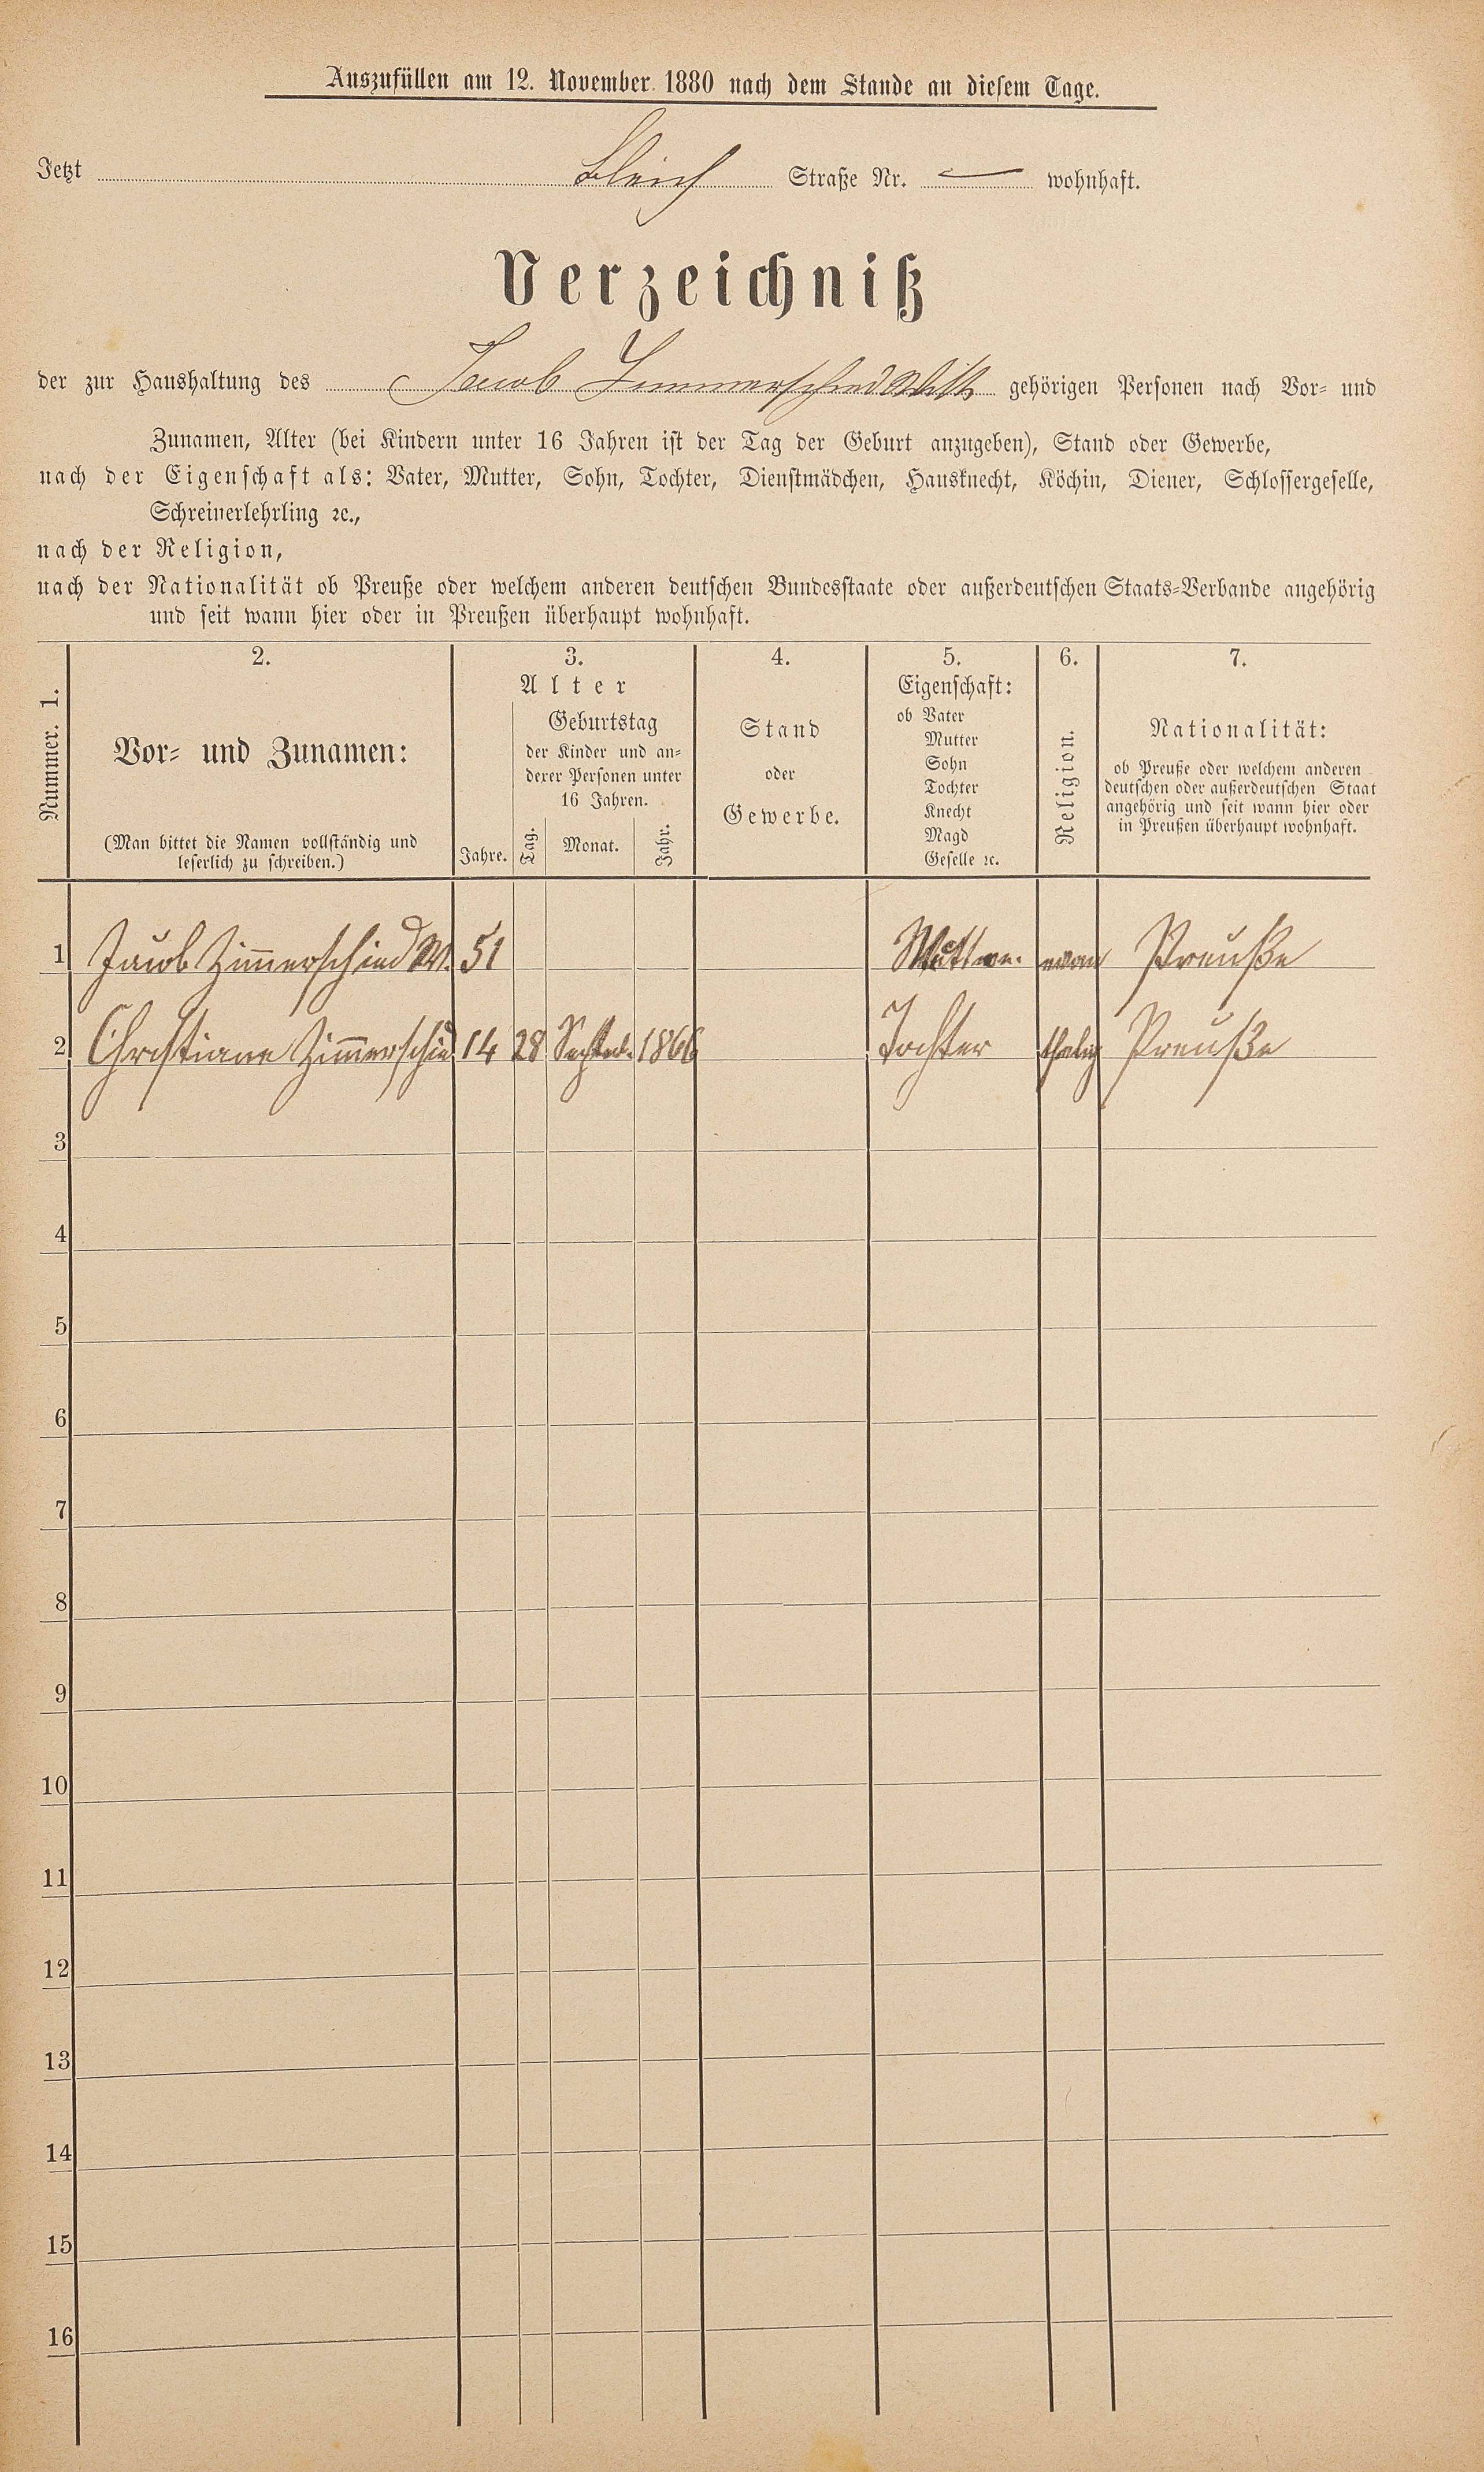 Auszufüllen am 12. November 1880 nach dem Stande an diesem Tage.
Jetzt Bleich Straße Nr. — wohnhaft.
Verzeichniß
der zur Haushaltung des Jacob Zimmerschied gehörigen Personen nach Vor- und
Zunamen, Alter (bei Kindern unter 16 Jahren ist der Tag der Geburt anzugeben), Stand oder Gewerbe,
nach der Eigenschaft als: Vater, Mutter, Sohn, Tochter, Dienstmädchen, Hausknecht, Köchin, Diener, Schlossergeselle,
Schreinerlehrling ꝛc.,
nach der Religion,
nach der Nationalität ob Preuße oder welchem anderen deutschen Bundesstaate oder außerdeutschen Staats-Verbande angehörig
und seit wann hier oder in Preußen überhaupt wohnhaft.
Nummer. 1.
2.
Vor- und Zunamen:
(Man bittet die Namen vollständig und
leserlich zu schreiben.)
3.
Alter
Geburtstag
der Kinder und an-
derer Personen unter
16 Jahren.
Jahre. Tag. Monat. Jahr.
4.
Stand
oder
Gewerbe.
5.
Eigenschaft:
ob Vater
Mutter
Sohn
Tochter
Knecht
Magd
Geselle ꝛc.
6.
Religion.
7.
Nationalität:
ob Preuße oder welchem anderen
deutschen oder außerdeutschen Staat
angehörig und seit wann hier oder
in Preußen überhaupt wohnhaft.
1 Jacob Zimmerschied W. 51 evan Preuße
2 Christiane Zimmerschied 14 28 Septbr. 1866 Tochter Preuße
3
4
5
6
7
8
9
10
11
12
13
14
15
16